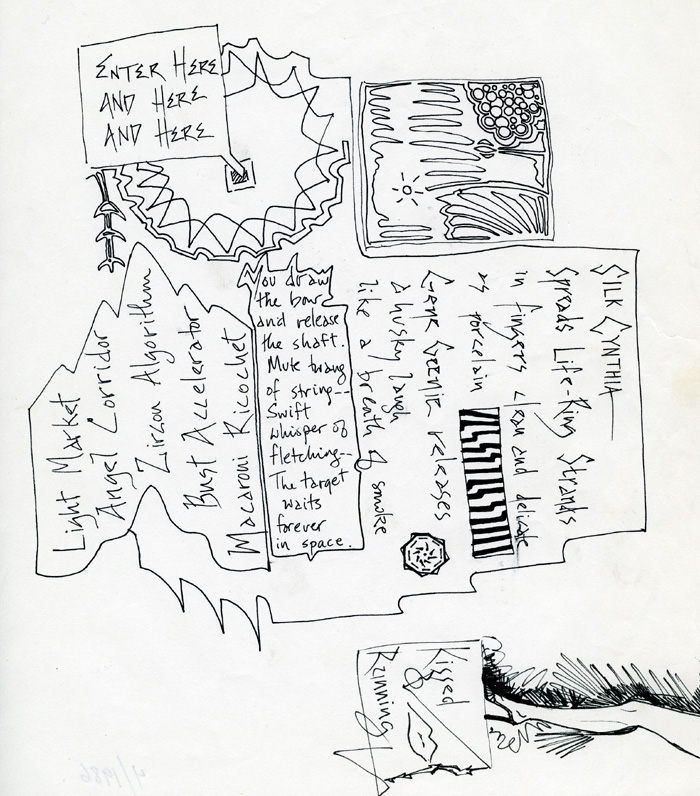 ENTER HERE
AND HERE
AND HERE
You draw
the bow
and release
the shaft.
Mute twang
of string--
Swift
whisper of
fletching--
The target
waits
forever
in space.
Light Market
Angel Corridor
Zircon Algorithm
Bust Accelerator
Macaroni Ricochet
SILK CYNTHIA
Spreads Life-Ring Strands
in fingers clean and delicate
as porcelain
Gene Geenie releases
A husky laugh
like a breath of smoke
Kissed
Running
4/1986